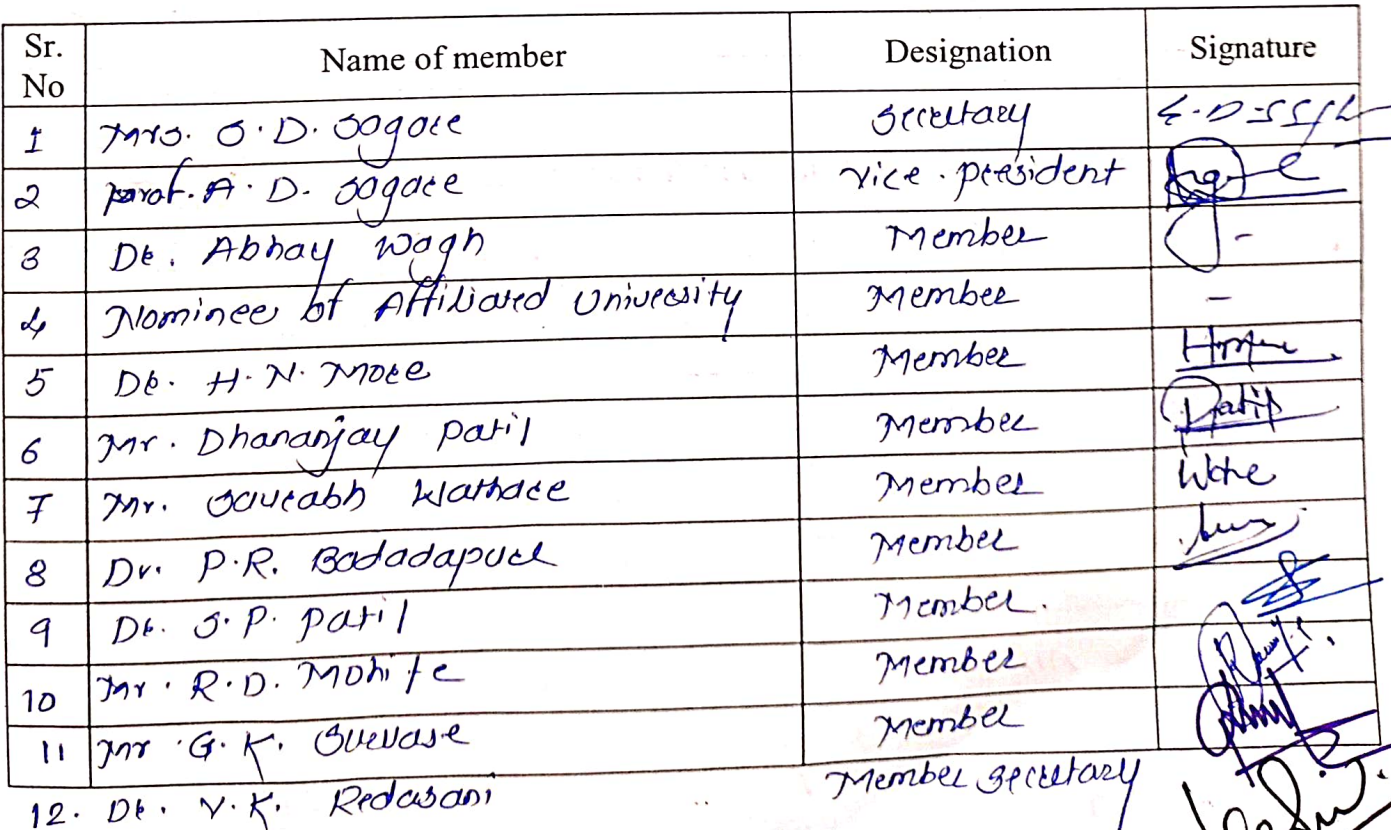 Sr. No Name of member Designation Signature
1 Mrs. S. D. Sagare Secretary
2 Prof. A. D. Sagare Vice. president
3 Dr. Abhay Wagh Member -
4 Nominee of Affiliated University Member -
5 Dr. H. N. More Member
6 Mr. Dhananjay Patil Member Patil
7 Mr. Saurabh Wathare Member
8 Dr. P.R. Badadapure Member
9 Dr. S. P. Patil Member.
10 Mr. R.D. Mohite Member
11 Mr G. K. Survase Member
12. Dr. V. K. Redasani Member Secretary